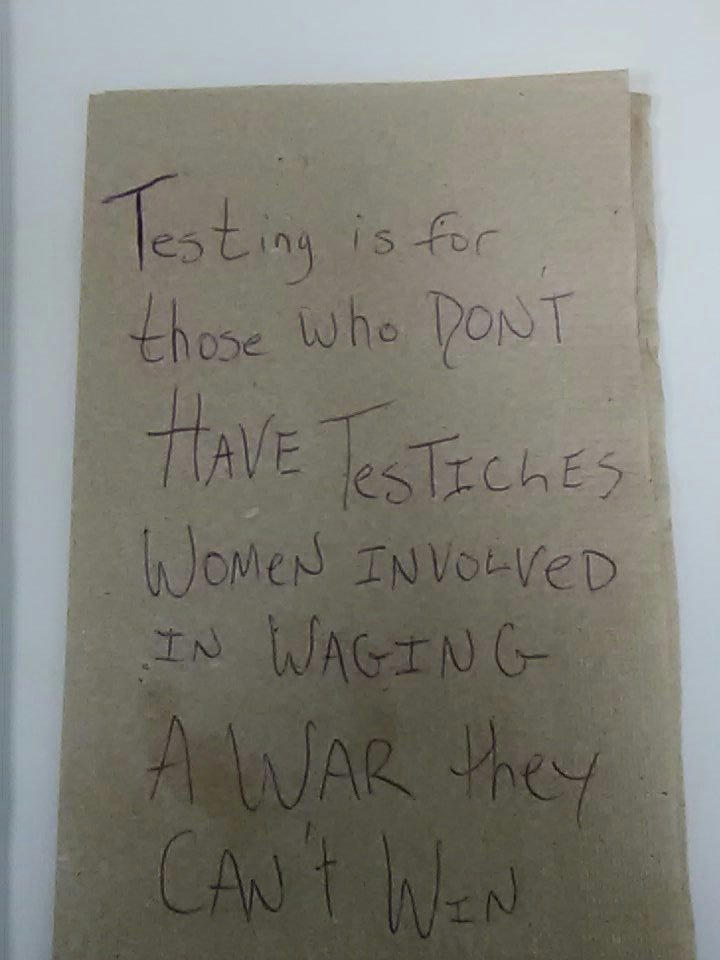 Testing is for
those who DON'T
HAVE TesTICLES
WOMeN INVOLVeD
IN WAGING
A WAR they
CAN't WIN